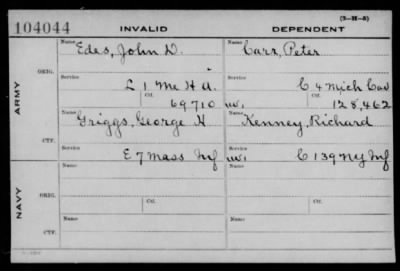 (3-H-5)
104044 INVALID DEPENDENT
Name Edes, John D. Name Carr, Peter
ARMY
ORIG.
Service L 1 Me H A. Service C 4 Mich Cav
Ctf. 69710 Wi, Ctf. 128,462
Name Griggs, George H Name Kenney, Richard
CTF.
Service E 7 Mass Inf Wi Service C 139 NY Inf
NAVY
ORIG.
Name Name
Service Ctf. Service Ctf.
CTF.
Name Name